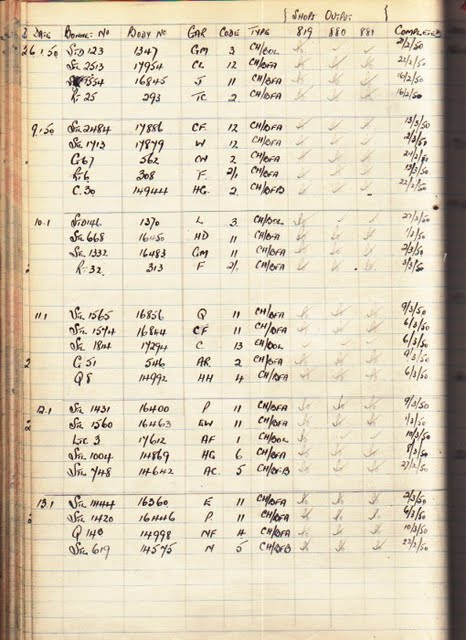 { Shops Output }
DATE BONNET. NO BODY NO GAR CODE TYPE 819 880 881 COMPLETED
26.1.50 STD 123 1347 GM 3 CH/DOL 21/2/50
STL 2513 17954 CL 12 CH/DFA 22/2/50
1554 16845 J 11 CH/DFA 16/2/50
RT 25 293 TC 2 CH/DFA 16/2/50
9.1.50 STL 2484 17886 CF 12 CH/DFA 13/3/50
STL 1713 17879 W 12 CH/DFA 2/3/50
G 67 562 CW 2 CH/DFA
RT 6 308 F 2/1 CH/DFA 13/3/50
C. 30 14944 HG. 2 CH/DFB 22/2/50
10.1 STD 146 1370 L 3. CH/DOL 27/2/50
STL 668 16450 HD 11 CH/DFA 1/3/50
STL 1332 16483 GM 11 CH/DFA 2/3/50
RT. 32. 313 F 2/1 CH/DFA 3/3/50
11.1 STL 1565 16856 Q 11 CH/DFA 9/3/50
STL 1574 16864 CF 11 CH/DFA 6/3/50
STL 1804 17294 C 13 CH/DOL 6/3/50
2 G 51 546 AR 2 CH/DFA 9/3/50
Q 8 14992 HH 4 CH/DFA 6/3/50
12.1 STL 1431 16400 P 11 CH/DFA 9/3/50
STL 1560 16463 EW 11 CH/DFA 1/3/50
LTC 3 17612 AF 1 CH/DOL 10/3/50
STL 1004 14869 HG 6 CH/DFA 8/3/50
STL 748 14642 AC. 5 CH/DFB 27/2/50
13.1 STL 1444 16360 E 11 CH/DFA 2/3/50
STL 1420 16446 P 11 CH/DFA 6/3/50
Q 140 14998 NF 4 CH/DFA 10/3/50
STL 619 14575 N 5 CH/DFB 22/2/50